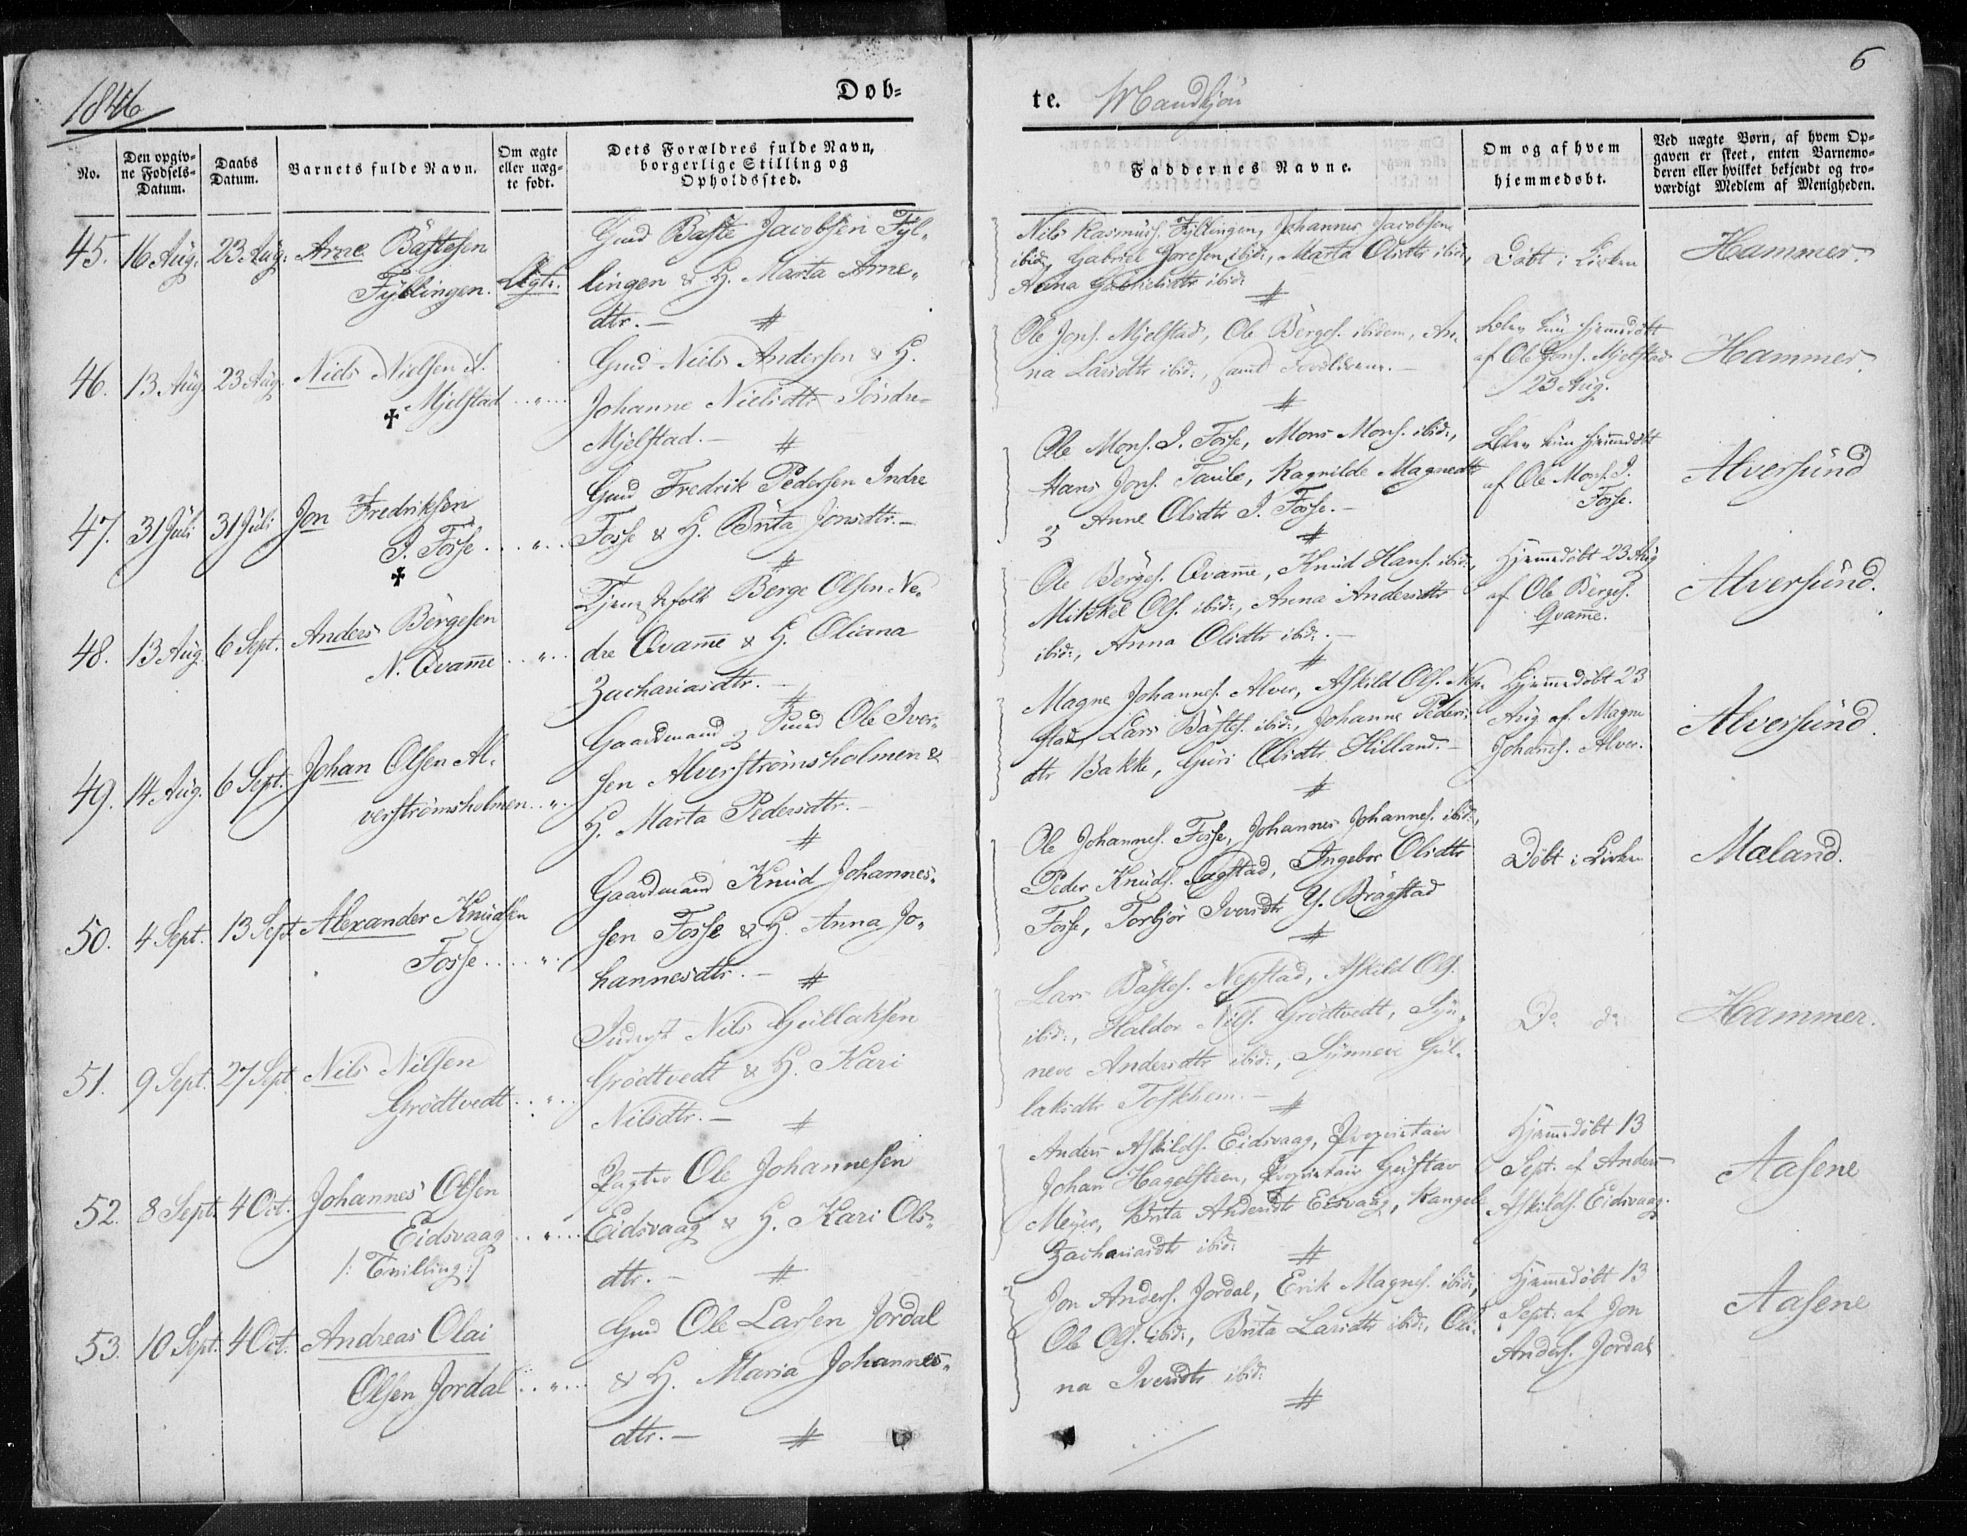 1846
Døb-
te. Mandkjøn
6
No.
Den opgiv-
ne Fødsels-
Datum.
Daabs
Datum.
Barnets fulde Navn.
Om ægte
eller uæg-
te født.
Dets Forældres fulde Navn,
borgerlige Stilling og
Opholdssted.
Faddernes Navne.
Om og af hvem
hjemmedøbt.
Ved uægte Børn, af hvem Op-
gaven er skeet, enten Barnemo-
deren eller hvilket bekjendt og tro-
værdigt Medlem af Menigheden.
45. 16 Aug. 23 Aug. Arne Bastesen
Fyllingen. Ægte.
Gmd Baste Jacobsen Fyl-
lingen & H. Marta Arne-
dtr. —
Nils Rasmuss. Fyllingen, Johannes Jacobsen
ibid:, Gabriel ibid:, Marta Olsdtr ibid:,
Anna Gabrielsdtr ibid:
Døbt i Kirken
Hammer.
46. 13 Aug. 23 Aug. Niels Nielsen S.
Mjelstad
Gmd Niels Andersen & H.
Johanne Nielsdtr Søndre
Mjelstad. —
Ole Jons. Mjelstad, Ole Børges. ibidem, An-
na Larsdtr ibid:, samt Forældrene. —
Blev kun hjemmedøbt
af Ole Jons. Mjelstad
23 Aug.
Hammer.
47. 31 Juli 31 Juli Jon Fredriksen
I. Fosse
Gmd Fredrik Pedersen Indre
Fosse & H. Brita Jonsdtr. —
Ole Mons. I. Fosse, Mons Mons. ibid:,
Hans Jons. Taule, Ragnilde Magnedtr
og Anne Olsdtr I. Fosse. —
Blev kun hjemmedøbt
af Ole Mons. I.
Fosse.
Alversund
48. 13 Aug. 6 Sept. Anders Børgesen
N. Qvamme
Børge Olsen Ne-
dre Qvamme & H. Oliana
Zachariasdtr. —
Ole Børges. Qvamme, Knud Hans. ibid:,
Mikkel Ols. ibid:, Anna Andersdtr
ibid:, Anna Olsdtr ibid: —
Hjemmedøbt 23 Aug
af Ole Børges.
Qvamme.
Alversund.
49. 14 Aug. 6 Sept. Johan Olsen Al-
verstrømsholmen
Gaardmand og Ole Iver-
sen Alverstrømsholmen &
H. Marta Pedersdtr. —
Magne Johannes. Alver, Askild Ols. Nep-
stad, Lars Bastes. ibid:, Johanne Peders-
dtr Bakke, Guri Olsdtr Hilland. —
Hjemmedøbt 23
Aug af Magne
Johans. Alver.
Alversund.
50. 4 Sept. 13 Sept. Alexander Knudsen
Fosse
Gaardmand Knud Johannes-
sen Fosse & H. Anna Jo-
hannesdtr. —
Ole Johannes. Fosse, Johannes Johannes. ibid:,
Peder Knuds. Sagstad, Ingebor Olsdtr
Fosse, Torbjør Iversdtr Y. Brøgstad
Døbt i Kirken
Maland.
51. 9 Sept. 27 Sept. Nils Nilsen
Grødtvedt
Nils Gullaksen
Grødtvedt & H. Kari
Nilsdtr. —
Lars Bastes. Nepstad, Askild Ols.
ibid:, Haldor Nils. Grødtvedt, Syn-
neve Andersdtr ibid:, Synneve Gul-
laksdtr Toskhem. —
Do do
Hammer.
52. 8 Sept. 4 Oct. Johannes Olsen
Eidsvaag
/: Tvilling :/
Pagter Ole Johannesen
Eidsvaag & H. Kari Ols-
dtr. —
Anders Askilds. Eidsvaag, Proprietair
Johan Hagelsteen, Proprietair Gustav
Meyer, Brita Andersdt Eidsvaag,
Zachariasdtr ibid:
Hjemmedøbt 13
Sept. af Anders
Askilds. Eidsvaag.
Aasene
53. 10 Sept. 4 Oct. Andreas Olai
Olsen Jordal
Gmd Ole Larsen Jordal
& H. Maria Johannes-
dtr. —
Jon Anders. Jordal, Erik Magnes. ibid:,
Ole Ols. ibid:, Brita Larsdtr ibid:, Oli-
na Iversdtr ibid:
Hjemmedøbt 13
Sept. af Jon
Anders. Jordal
Aasene